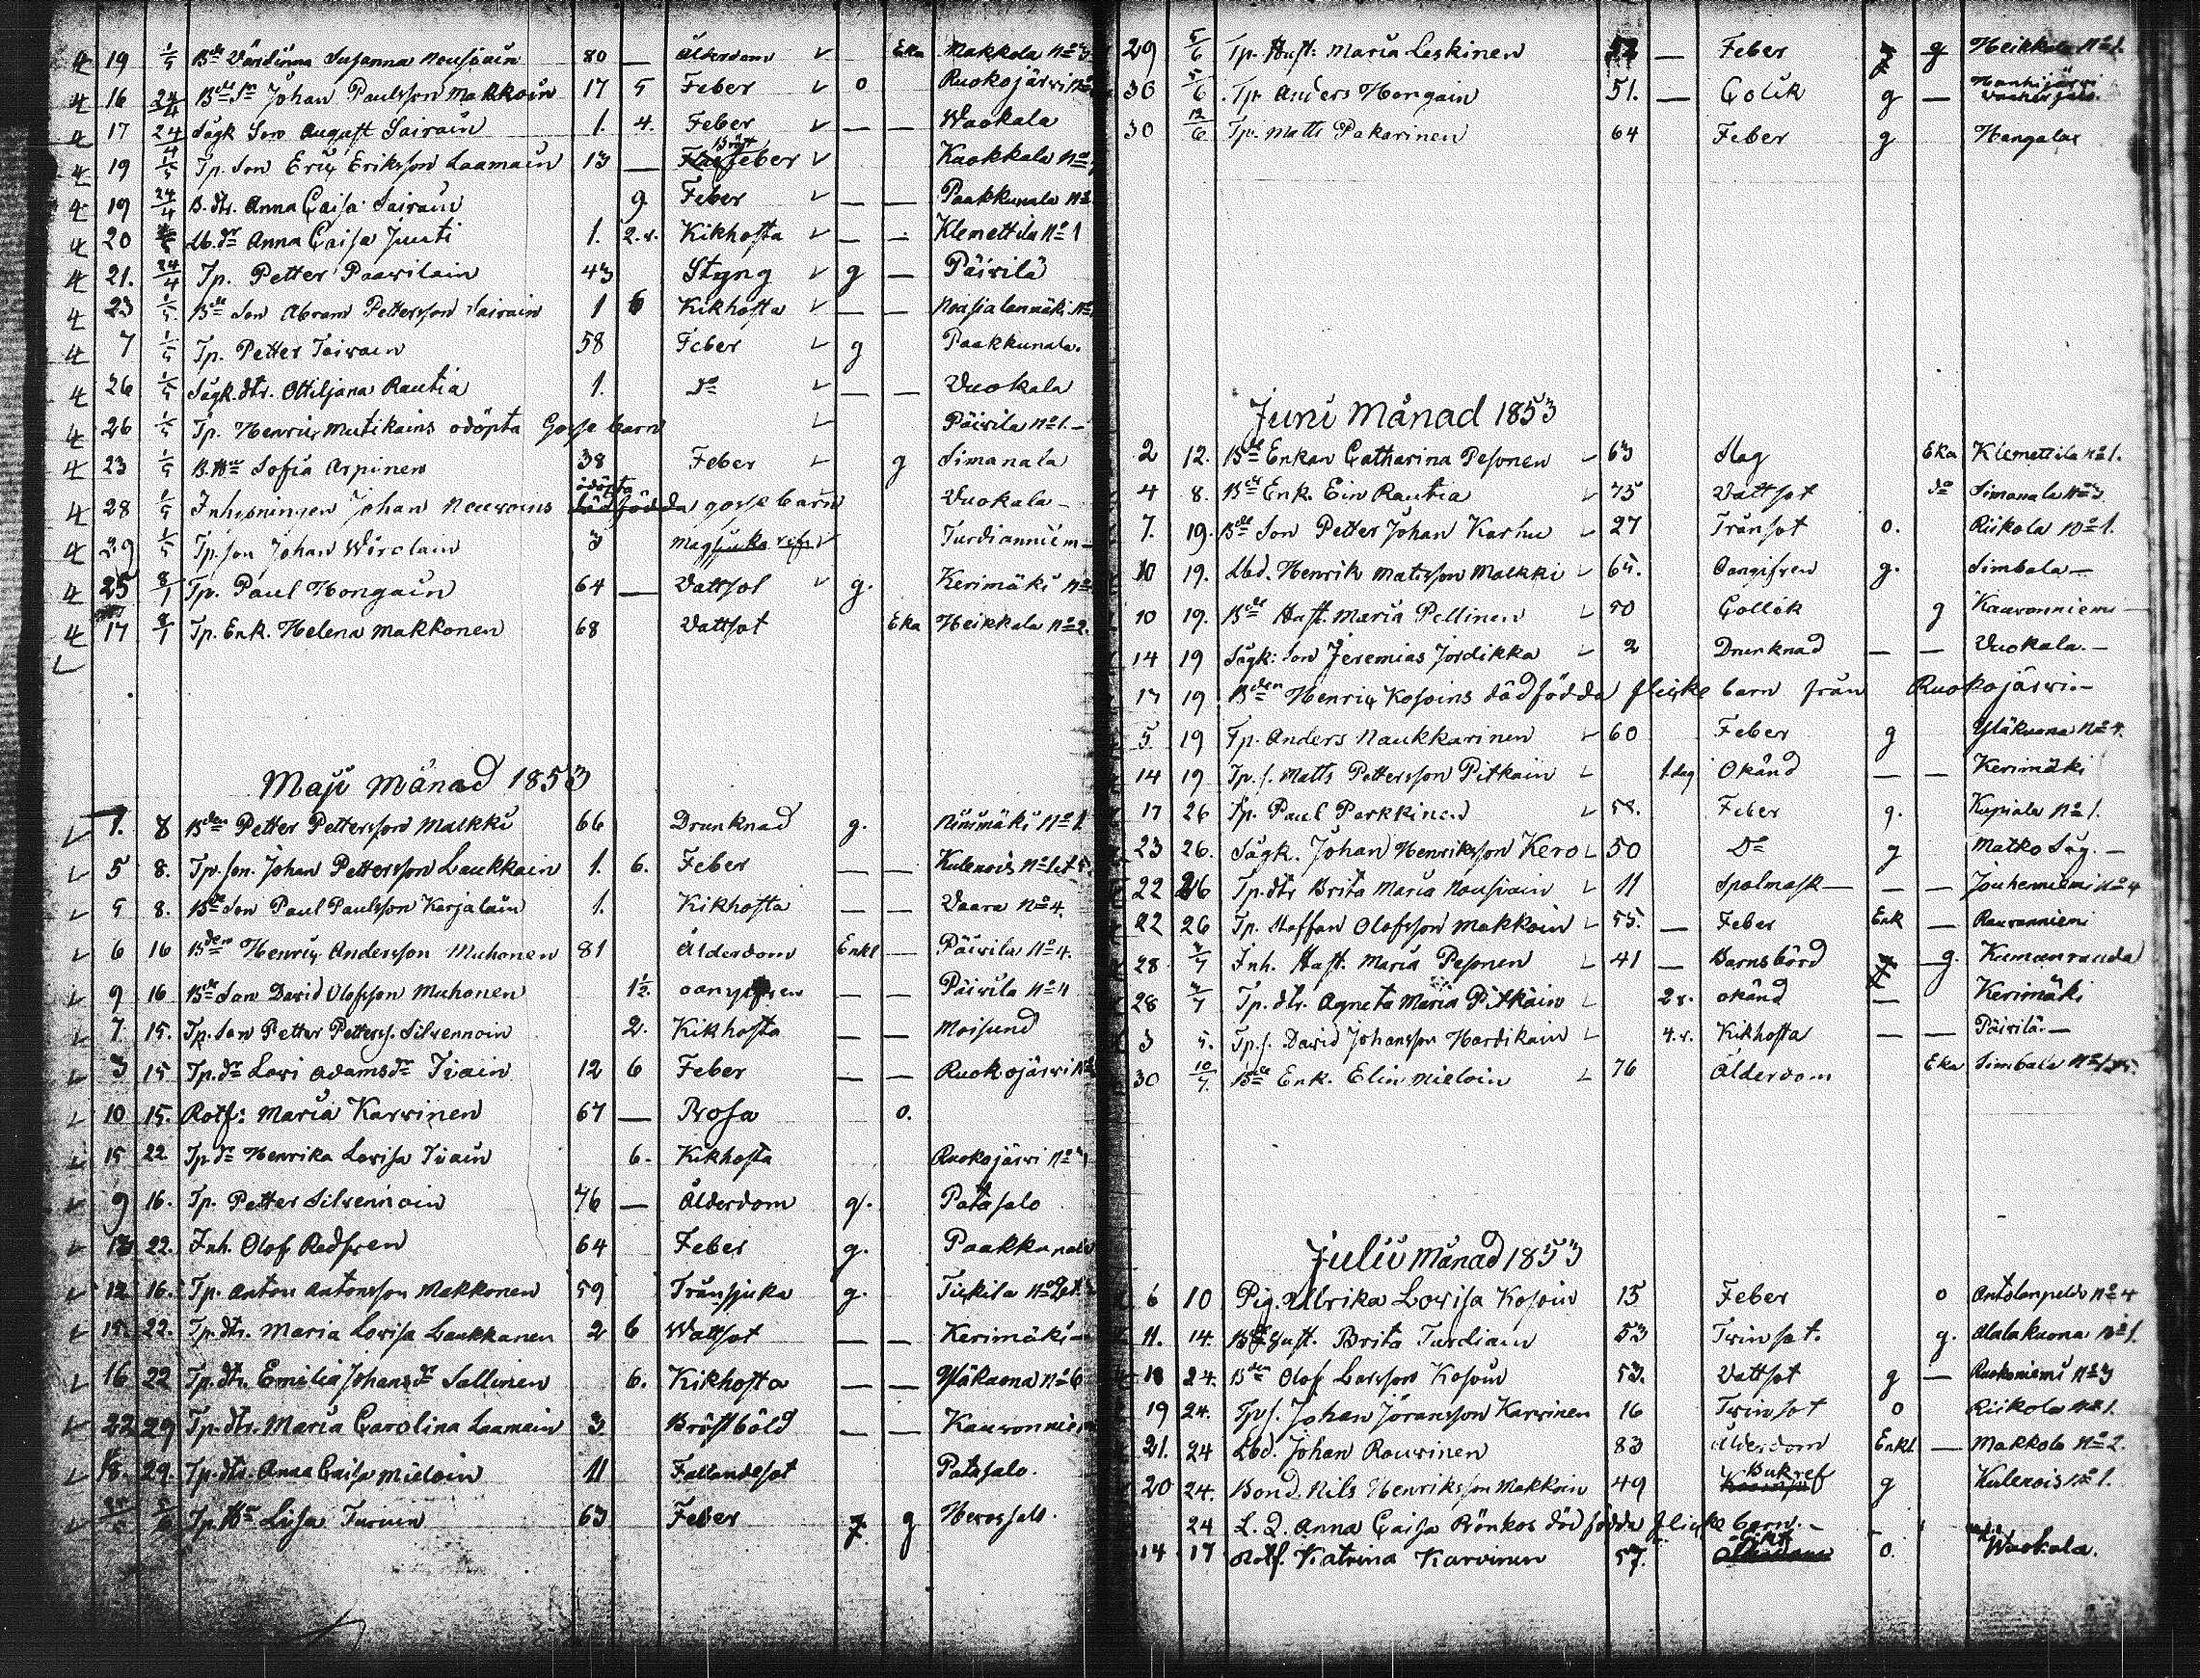 4 19 1/5 B:de Värdinna Susanna Nousiain 80 — Ålderdom Eka Makkola No 3
4 16 24/4 B:de Sn Johan Paulsson Makkoin 17 5 Feber o Ruokojärvi
4 17 24/4 Sågk Son August Sairain 1. 4. Feber — — Wuokala
4 19 1/5 Tp. Son Eric Eriksson Laamain 13 — Bröst Feber Kuokkala No
4 19 24/4 B. dtr. Anna Caisa Sairain 9 Feber — — Paakkunala No
4 20 Lb. dr Anna Caisa Juuti 1. 2.v. Kikhosta — — Klemettila No 1
4 21. 24/4 Tp. Petter Paavilain 43 Styng g — Päivilä
4 23 1/5 B:de Son Abram Pettersson Sairain 1 6 Kikhosta — —
4 7 1/5 Tp. Petter Toivain 58 Feber g Paakkunala.
4 26 1/5 Sågk. dtr. Ottiljana Rautia 1. Do — — Vuokala
4 26 1/5 Tp. Henric Mutikains odöpta Gosse barn Päivila No 1. —
4 23 1/5 B. Hu Sofia Arpinen 38 Feber g Simanala
4 28 1/5 Inhysningen Johan Neuvoins odöpta gosse barn Vuokala —
4 29 1/5 Tp. son Johan 3 Turdianniem —
4 25 8/1 Tp. Paul Hongain 64 — Vattsot g. Kerimäki No
4 17 8/1 Tp. Enk. Helena Makkonen 68 Vattsot Eka Heikkala No 2.
Maji Månad 1853
1. 8 B:den Petter Pettersson Malkki 66 Drunknad g. Niinimäki No 1
5 8. Tp. son. Johan Pettersson Laukkain 1. 6. Feber — — Kulenois
5 8. B:de Son Paul Paulsson Karjalain 1. Kikhosta — — Vaara No 4.
6 16 B:den Henric Andersson Muhonen 81 Ålderdom Enkl — Päivila No 4.
9 16 B:de Son David Olofsson Muhonen 1½ oangifven — — Päivila No 11
7. 15. Tp. Son Petter Petterss. Silvennoin 2. Kikhosta — — Moisund
3 15 Tp. dr Lovi Adamsdr Iivain 12 6 Feber — — Ruokojärvi No
10 15. Rotf: Maria Karvinen 67 — Rosa o.
15 22 Tp dr Henrika Lovisa Iivain 6. Kikhosta Ruokojärvi No
9 16. Tp. Petter Silvennoin 76 — Ålderdom g. Patasalo
22. Inh. Olof Redsven 64 Feber g. Paakkunala
12 16. Tp. Anton Antonsson Makkonen 59 Trånsjuka g. Tickila
15. 22. Tp. dtr. Maria Lovisa Laukkanen 2 6 Wattsot — — Kerimäki —
16 22 Tp. dtr. Emilia Johansdr Sallinen 6. Kikhosta — — Yläkuona No 6
22 29 Tp. dtr. Maria Carolina Laamain 3 Bröstböld — — Kauvonniem
18. 29. Tp. dtr. Anna Caisa Mieloin 11 Fallandesot Patasalo.
Tp. Hu Lisa Turuin 63 Feber g Herossalo.
29 5/6 Tp. Hust: Maria Leskinen — Feber g Heikkala No 2.
30 5/6 Tp. Anders Hongain 51. — Colik g —
30 12/6 Tp. Matts Pakarinen 64 Feber g Hangala
Juni Månad 1853
2 12. B:de Enkan Catharina Pesonen 63 Slag Eka Klemettila No 1.
4 8. B:de Enk. Ein Rautia 75 Vattsot do Simanala No 3
7. 19. B:de Son Petter Johan Karhu 27 Trånsot o. Riikola No 1.
10 19. Lbd. Henrik Matsson Malkki 65. Oangifven g. Simbala —
10 19. B:de Hust. Maria Pellinen 50 Collik g Kauvonniemi —
14 19 Sågk: Son Jeremias Jordikka 2 Drunknad — — Vuokala. —
17 19 B:den Henric Kosoins dödfödda flicke barn från Ruokojärvi —
5 19 Tp. Anders Naukkarinen 60 Feber g Yläkuona No 4.
14 19 Tp. s. Matts Pettersson Pitkäin 1. dag Okänd — — Kerimäki
17 26 Tp. Paul Parkkinen 58. Feber g. Kupiala No 1.
23 26. Sågk. Johan Henriksson Kero 50 Do g Matko Såg. —
22 26 Tp. dtr Brita Maria Nousiain 11 Spolmask — — — Jouhenniemi No 4
22 26 Tp. Staffan Olofsson Makkoin 55. — Feber Enk — Rauvanniemi
28 3/7 Inh. Hust. Maria Pesonen 41 — Barnsbörd g. Kumanranda
28 3/7 Tp. dtr. Agneta Maria Pitkäin 2 v. okänd — Kerimäki
3 5. Tp. s. David Johansson Hardikain 4. v. Kikhosta — — Päivilä. —
30 10/7. B:de Enk. Elin Mieloin 76 Ålderdom Eka Simbala
Julii Månad 1853
6 10 Pig. Ulrika Lovisa Kosoin 15 Feber o Antolanpelto No 4
11. 14. B:de Hust. Brita Turdiain 53 Tvinsot. g. Alakuona No 1.
18 24. B:den Olof Larsson Kosoin 53. Vattsot g — Ruokoniemi No 3
19 24. Tp s. Johan Jöransson Karvinen 16 Tvinsot o Riikola No 1.
21. 24 Lbd. Johan Rauvinen 83 Ålderdom Enkl — Makkola No 2.
20 24. Bond. Nils Henriksson Makkoin 49 Bukref g Kulenois No 1.
24 L. D. Anna Caisa Rönkös död födda flicke barn. —
14 17 Rotf. Katrina Karvinen 57. o. Wuokala.